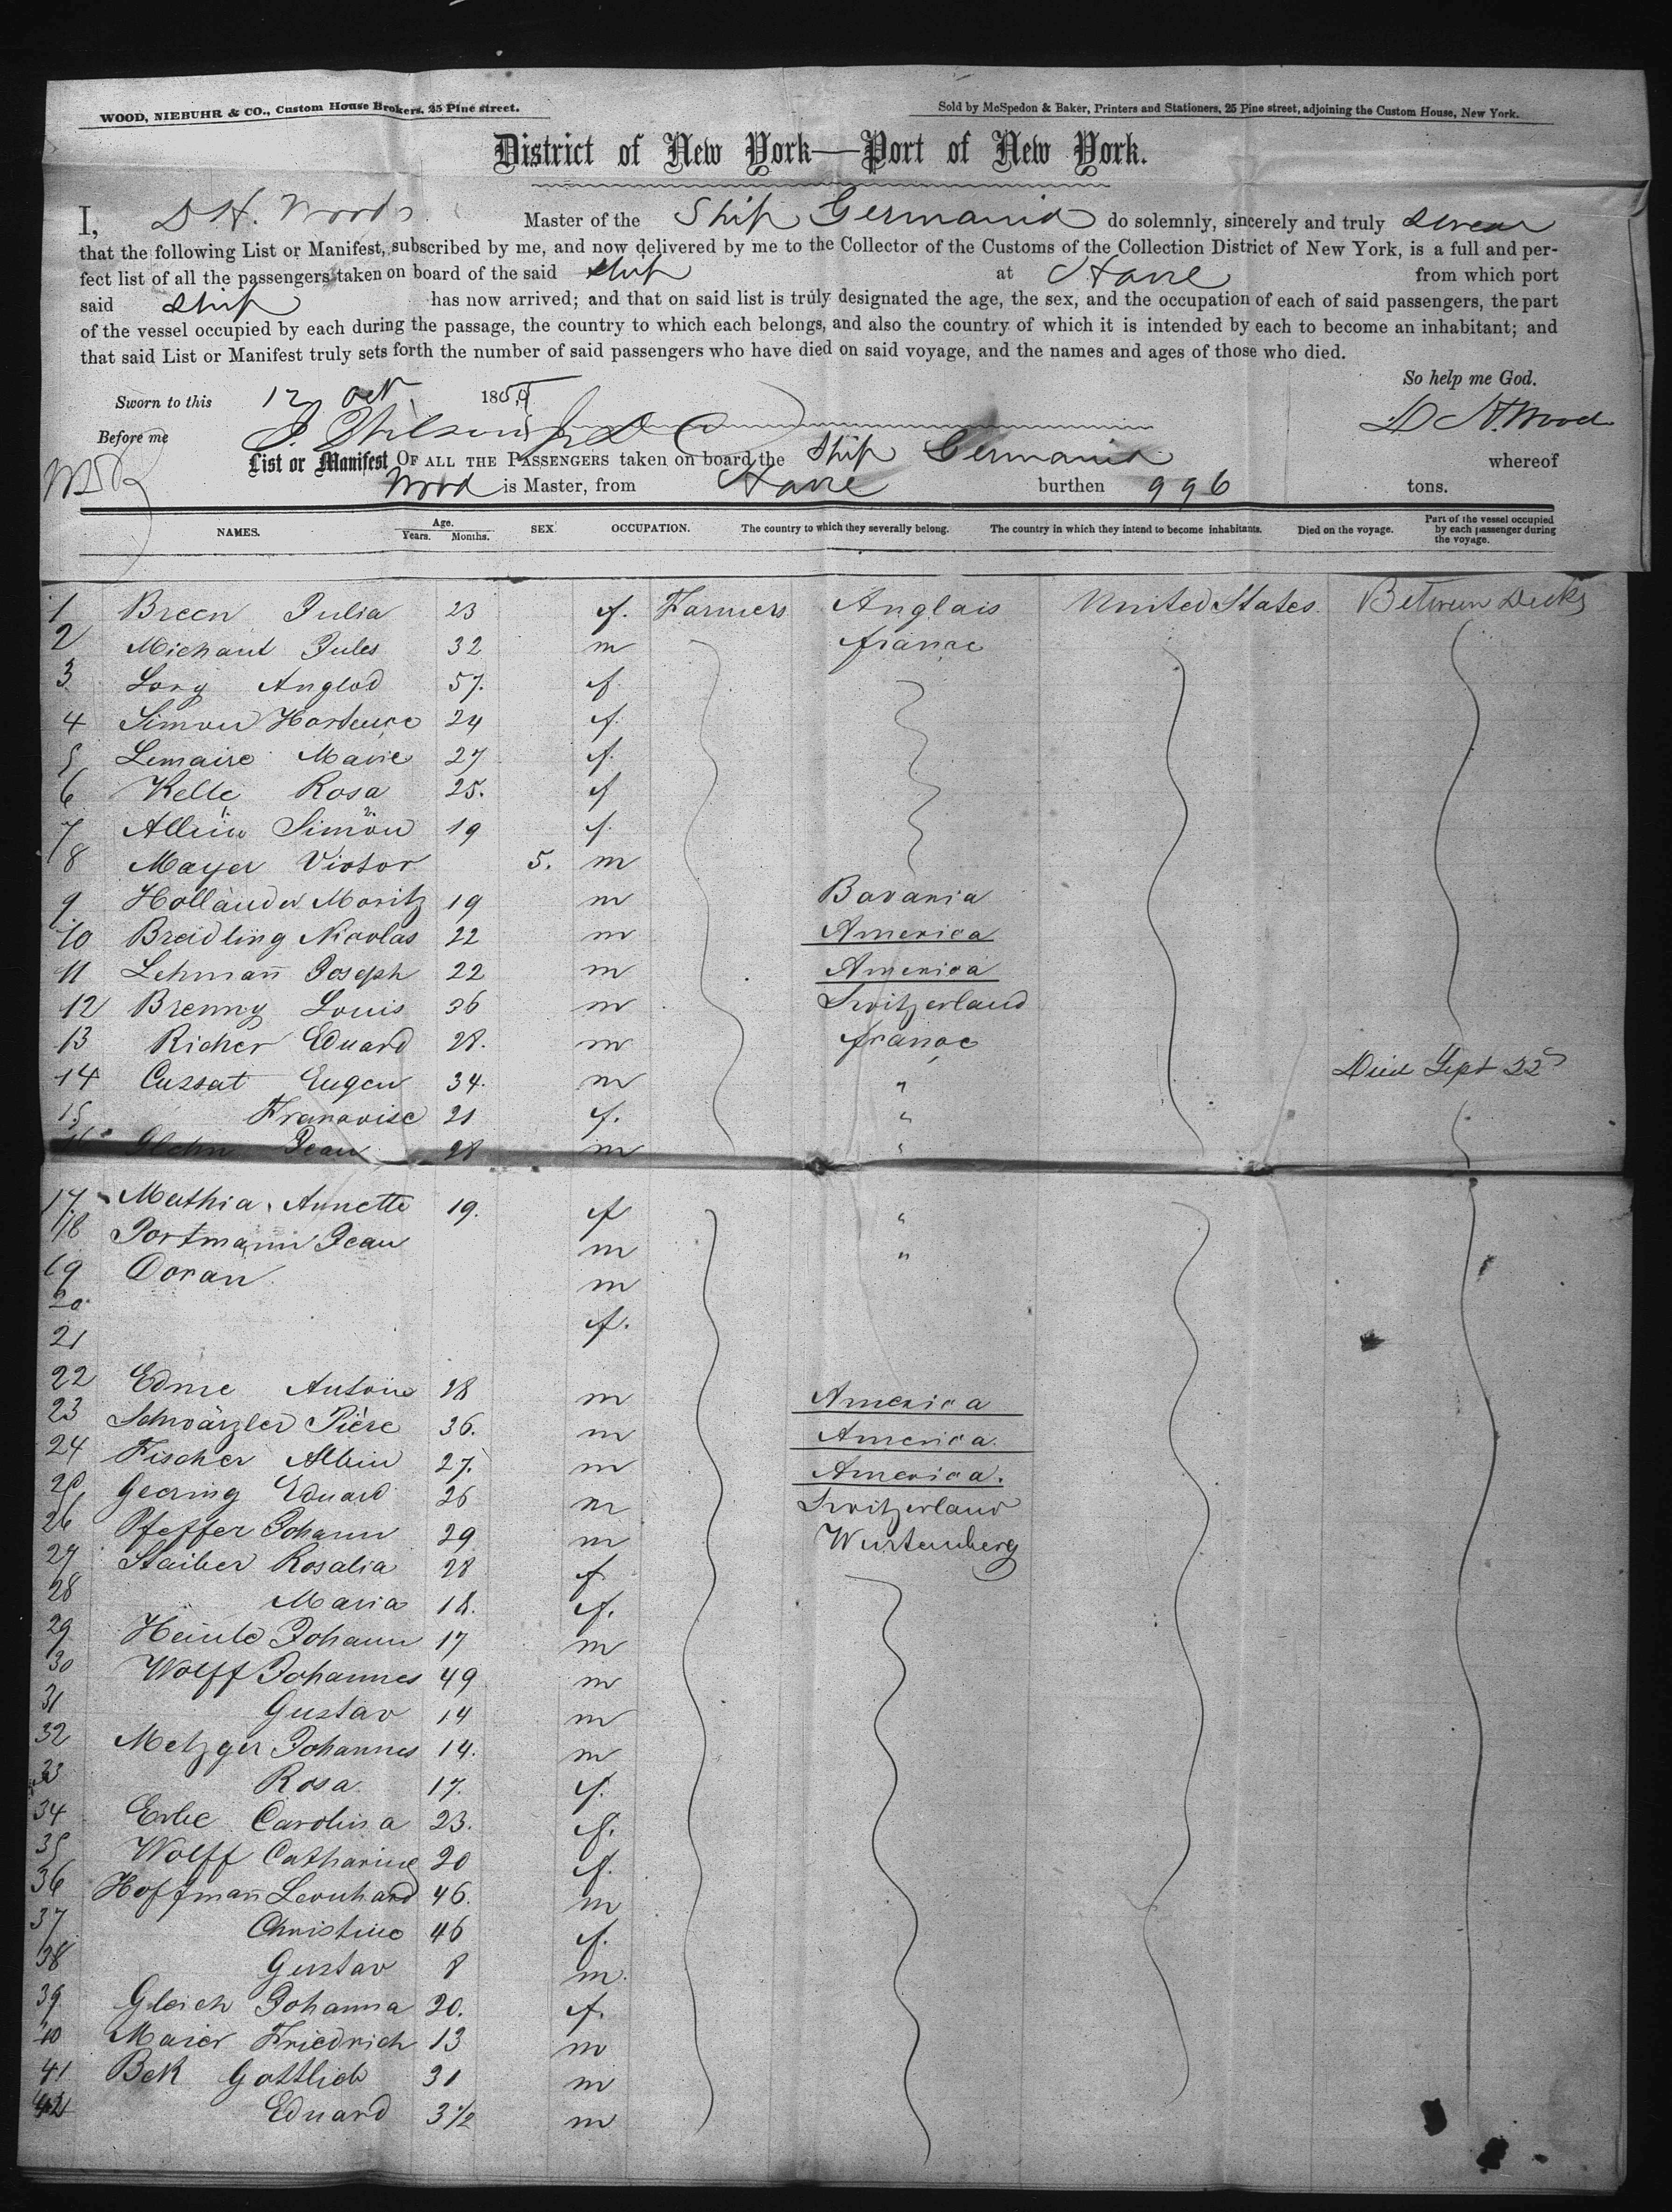 WOOD, NIEBUHR & CO., Custom House Brokers, 25 Pine street.
Sold by McSpedon & Baker, Printers and Stationers, 25 Pine street, adjoining the Custom House, New York.
District of New York—Port of New York.
I, D H. Wood Master of the Ship Germania do solemnly, sincerely and truly swear
that the following List or Manifest, subscribed by me, and now delivered by me to the Collector of the Customs of the Collection District of New York, is a full and per-
fect list of all the passengers taken on board of the said ship at Havre from which port
said ship has now arrived; and that on said list is truly designated the age, the sex, and the occupation of each of said passengers, the part
of the vessel occupied by each during the passage, the country to which each belongs, and also the country of which it is intended by each to become an inhabitant; and
that said List or Manifest truly sets forth the number of said passengers who have died on said voyage, and the names and ages of those who died.
So help me God.
Sworn to this 12 Oct 185
D H. Wood
Before me
List or Manifest OF ALL THE PASSENGERS taken on board the Ship Germania whereof
Wood is Master, from Havre burthen 996 tons.
NAMES. Age. Years. Months. SEX. OCCUPATION. The country to which they severally belong. The country in which they intend to become inhabitants. Died on the voyage. Part of the vessel occupied by each passenger during the voyage.
1 Breen Julia 23 f. Farmers Anglais United States. Between Decks
2 Michaut Jules 32 m france
3 Lory Anglod 57. f
4 Simon Hortence 24 f.
5 Lemaire Marie 27 f.
6 Kelle Rosa 25. f
7 Albin Simon 19 f.
8 Mayer Victor 5. m
9 Hollander Moritz 19 m Bavaria
10 Breidling Nicolas 22 m America
11 Lehmañ Joseph 22 m America
12 Brenny Louis 36 m Switzerland
13 Richer Eduard 28. m france
14 Cussat Eugen 34. m " Died Sept 22d
15 Francoise 21 f. "
16 Jean 28 m "
17. Mathia Annette 19. f "
18 Portmann Jean m "
19 Doran m
20 f.
21
22 Edme Antoine 28 m America
23 Schwärzler Pière 36. m America.
24 Fischer Albin 27. m America.
25 Geering Eduard 26 m Switzerland
26 Pfeffer Johann 29 m Wurtemberg
27 Staiber Rosalia 28 f
28 Maria 18. f.
29 Heinle Johann 17 m
30 Wolff Johannes 49 m
31 Gustav 14 m
32 Metzger Johannes 14. m
33 Rosa 17. f.
34 Erbe Carolina 23. f.
35 Wolff Catharine 20 f.
36 Hoffmañ Leonhard 46. m
37 Christine 46 f.
38 Gustav 8 m.
39 Gleich Johanna 20. f.
40 Maier Friedrich 13 m
41 Bek Gottlieb 31 m
42 Eduard 3 1/2 m